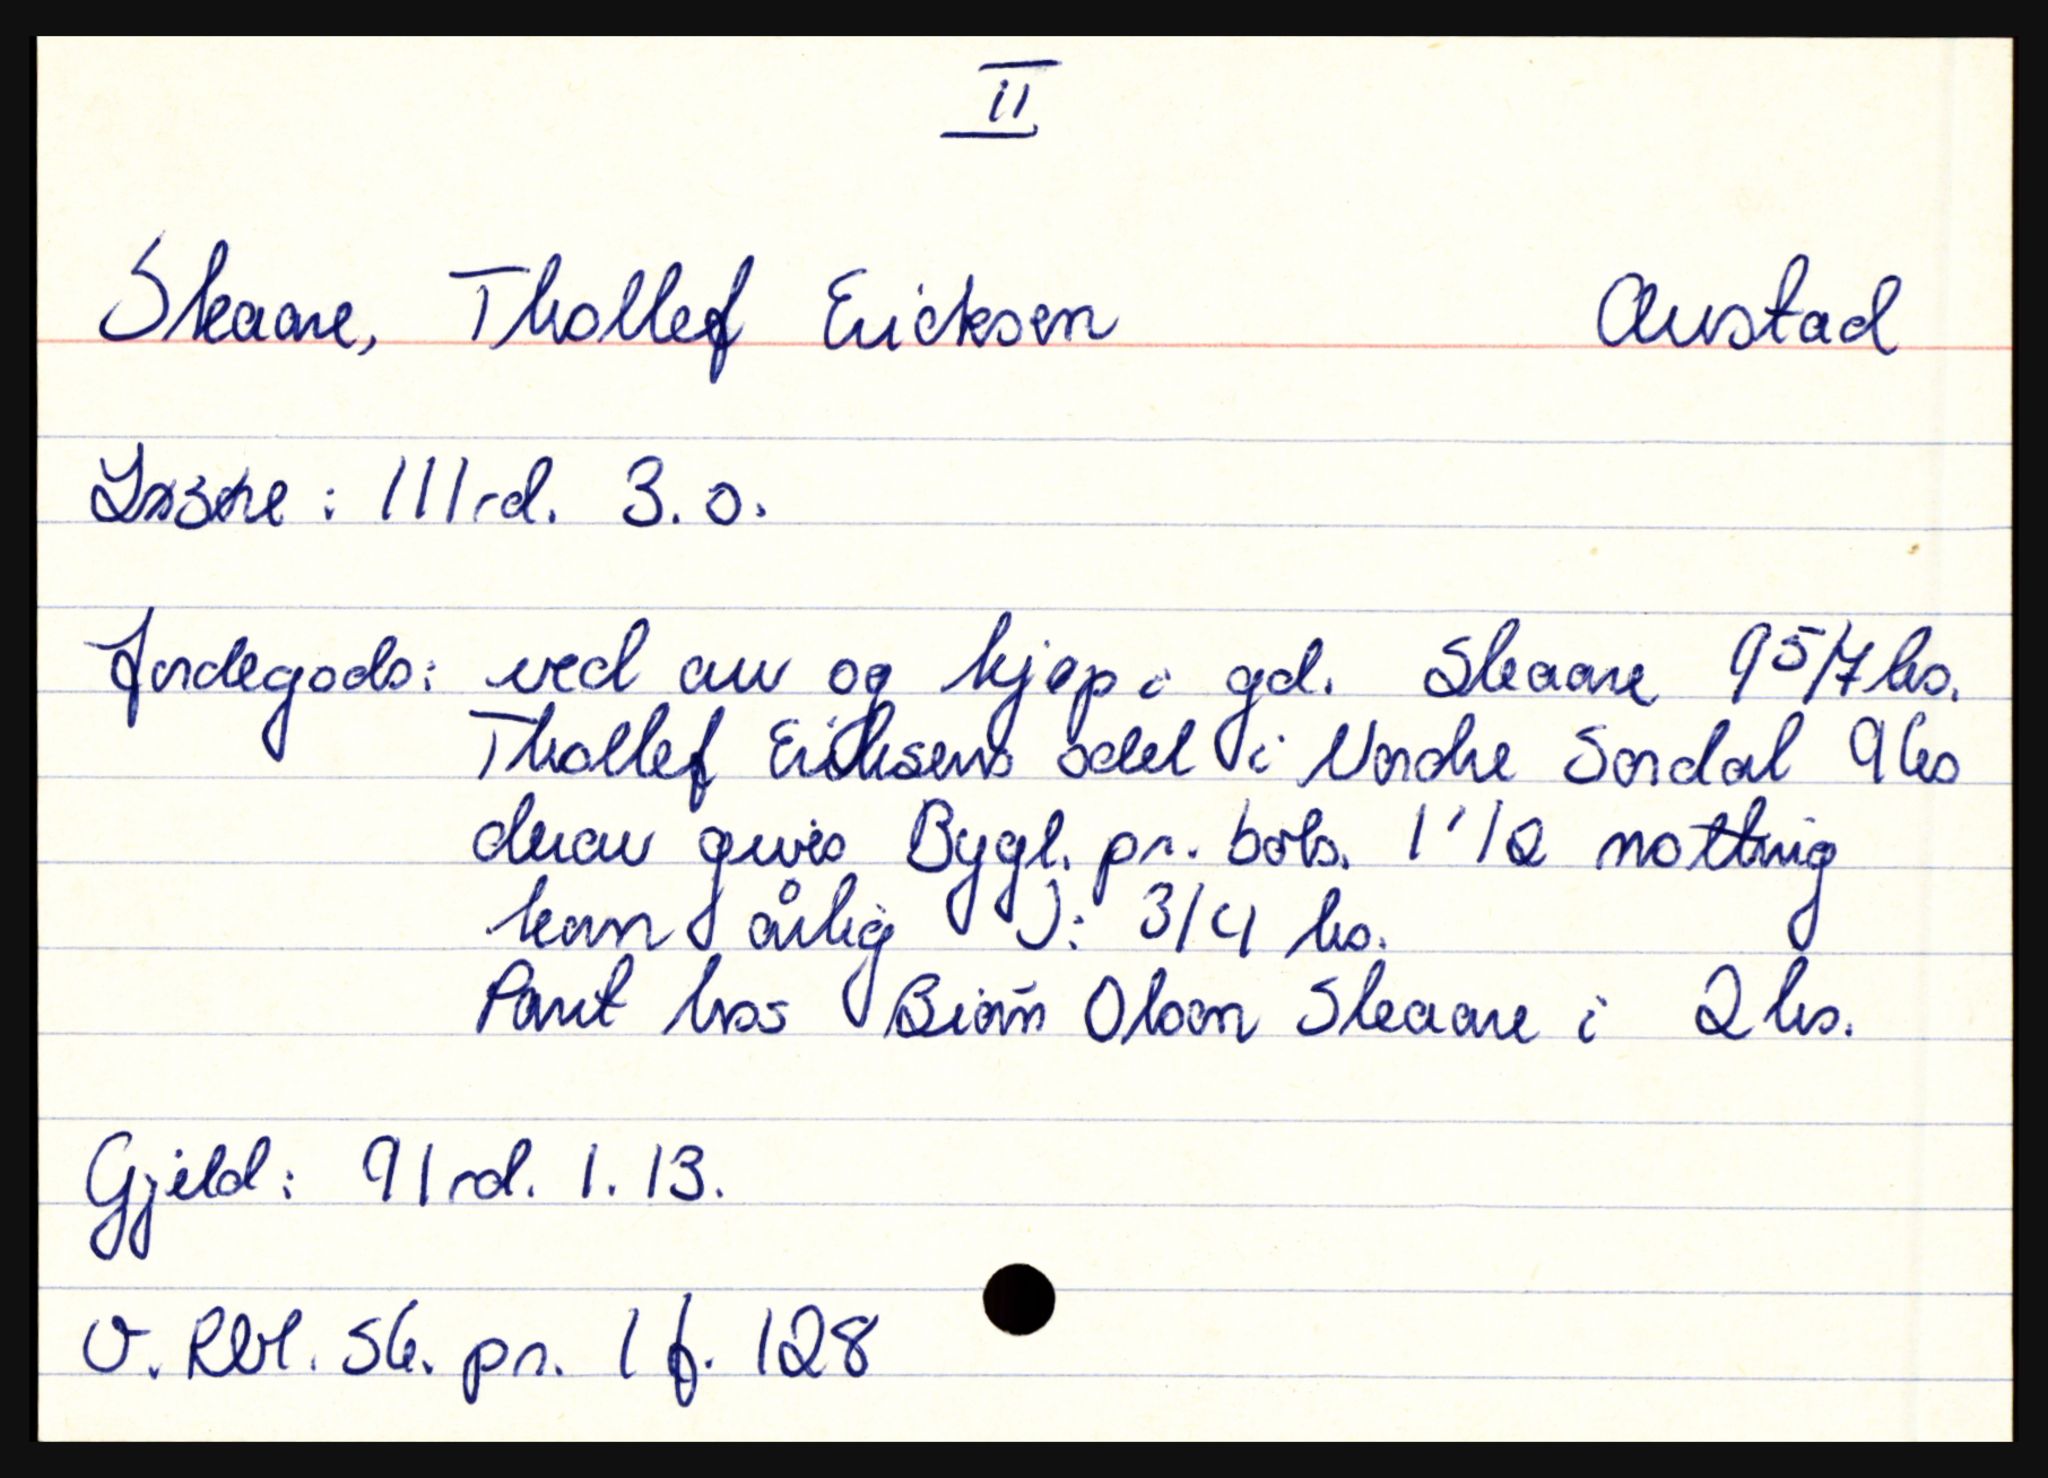 II
Skaare, Thollef Ericksen Austad
Løsøre: 111 rd. 3. 0.
Jordegods: ved arv og kjøp i gd. Skaare 9 5/7 hs.
Thollef Eriksens odel i Nordre Sordal 9 hs
derav gives Bygl. pr. bols. 1 1/2 notting
korn årlig ɔ: 3/4 hs.
Pant hos Biørn Olson Skaare i 2 hs.
Gjeld: 91 rd. 1. 13.
V. Rbl. Sk. pr. 1 f. 128